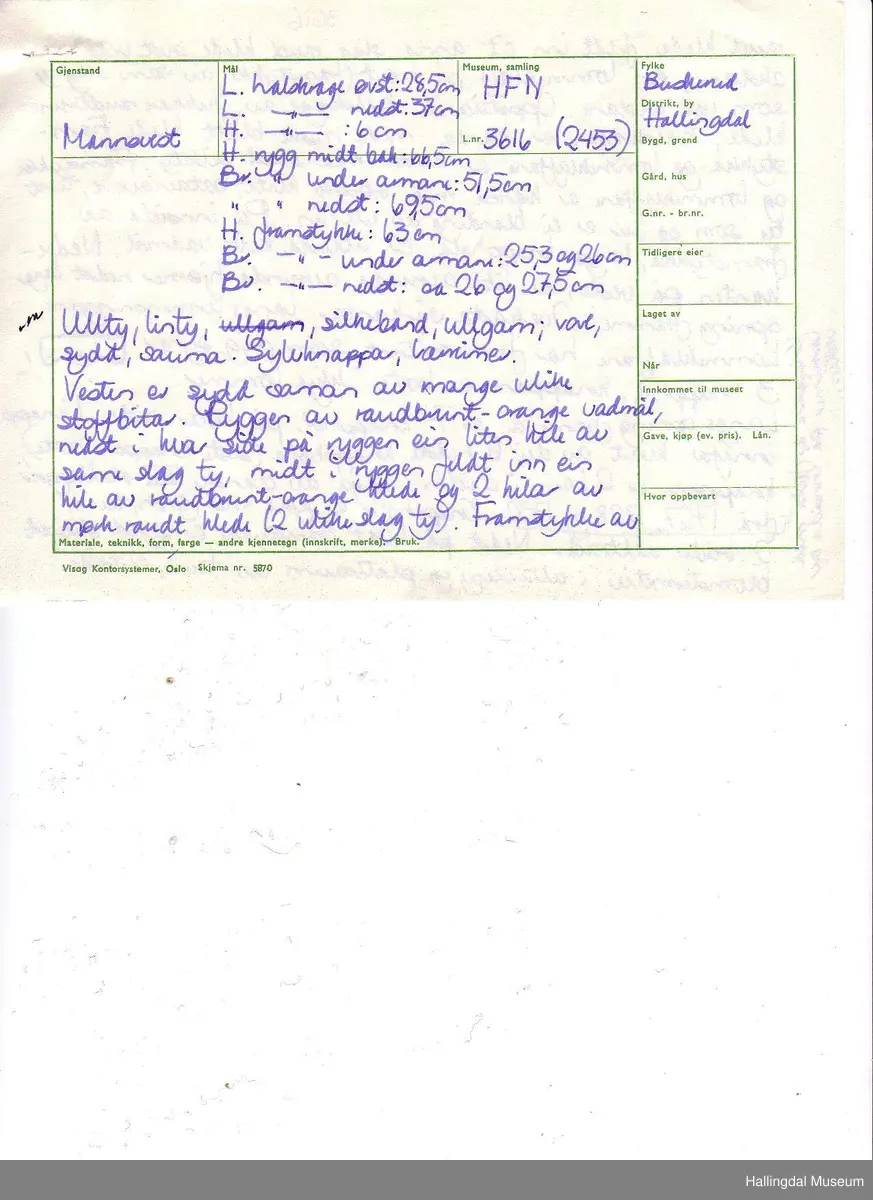 Gjenstand
Mannsvest
Mål
L. halskrage øvst: 28,5cm
L. —"— nedst: 37cm
H. —"— : 6 cm
H. rygg midt bak: 66,5cm
Br. " under armane: 51,5cm
" " nedst: 69,5cm
H. framstykke: 63 cm
Br. —"— under armane: 25,3 og 26cm
Br. —"— nedst: ca 26 og 27,5cm
Museum, samling
HFN
L.nr. 3616 (2453)
Fylke
Buskerud
Distrikt, by
Hallingdal
Bygd, grend
Gård, hus
G.nr. - br.nr.
Tidligere eier
Laget av
Når
Innkommet til museet
Gave, kjøp (ev. pris). Lån.
Hvor oppbevart
Ullty, linty, ullgarn, silkeband, ullgarn; vove,
sydd, sauma. Sylvknappar,
Vesten er sydd saman av mange ulike
stoffbitar. Ryggen av raudbrunt-orange vadmål,
nedst i kvar side på ryggen ein liten kile av
same slag ty, midt i ryggen feldt inn ein
kile av raudbrunt-orange klede og 2 kilar av
mørk raudt klede (2 ulike slag ty). Framstykke av
Materiale, teknikk, form, farge — andre kjennetegn (innskrift, merke). Bruk.
Visag Kontorsystemer, Oslo Skjema nr. 5870
Hallingdal Museum